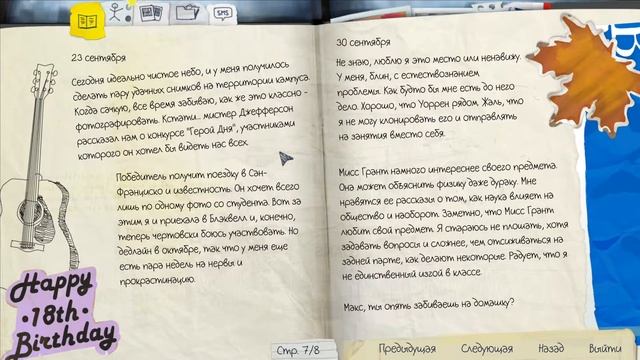 SMS
23 сентября
Сегодня идеально чистое небо, и у меня получилось
сделать пару удачных снимков на территории кампуса.
Когда сачкую, все время забиваю, как же это классно -
фотографировать. Кстати... мистер Джефферсон
рассказал нам о конкурсе "Герой Дня", участниками
которого он хотел бы видеть нас всех.
Победитель получит поездку в Сан-
Франциско и известность. Он хочет всего
лишь по одному фото со студента. Вот за
этим я и приехала в Блэквелл и, конечно,
теперь чертовски боюсь участвовать. Но
дедлайн в октябре, так что у меня еще
есть пара недель на нервы и
прокрастинацию.
Happy
•18th•
Birthday
30 сентября
Не знаю, люблю я это место или ненавижу.
У меня, блин, с естествознанием
проблемы. Как будто бы мне есть до него
дело. Хорошо, что Уоррен рядом. Жаль, что
я не могу клонировать его и отправлять
на занятия вместо себя.
Мисс Грант намного интереснее своего предмета.
Она может объяснить физику даже дураку. Мне
нравятся ее рассказы о том, как наука влияет на
общество и наоборот. Заметно, что Мисс Грант
любит свой предмет. Я стараюсь не плошать, хотя
задавать вопросы и сложнее, чем отсиживаться на
задней парте, как делают некоторые. Радует, что я
не единственный изгой в классе.
Макс, ты опять забиваешь на домашку?
Стр. 7/8
Предыдущая Следующая Назад Выйти